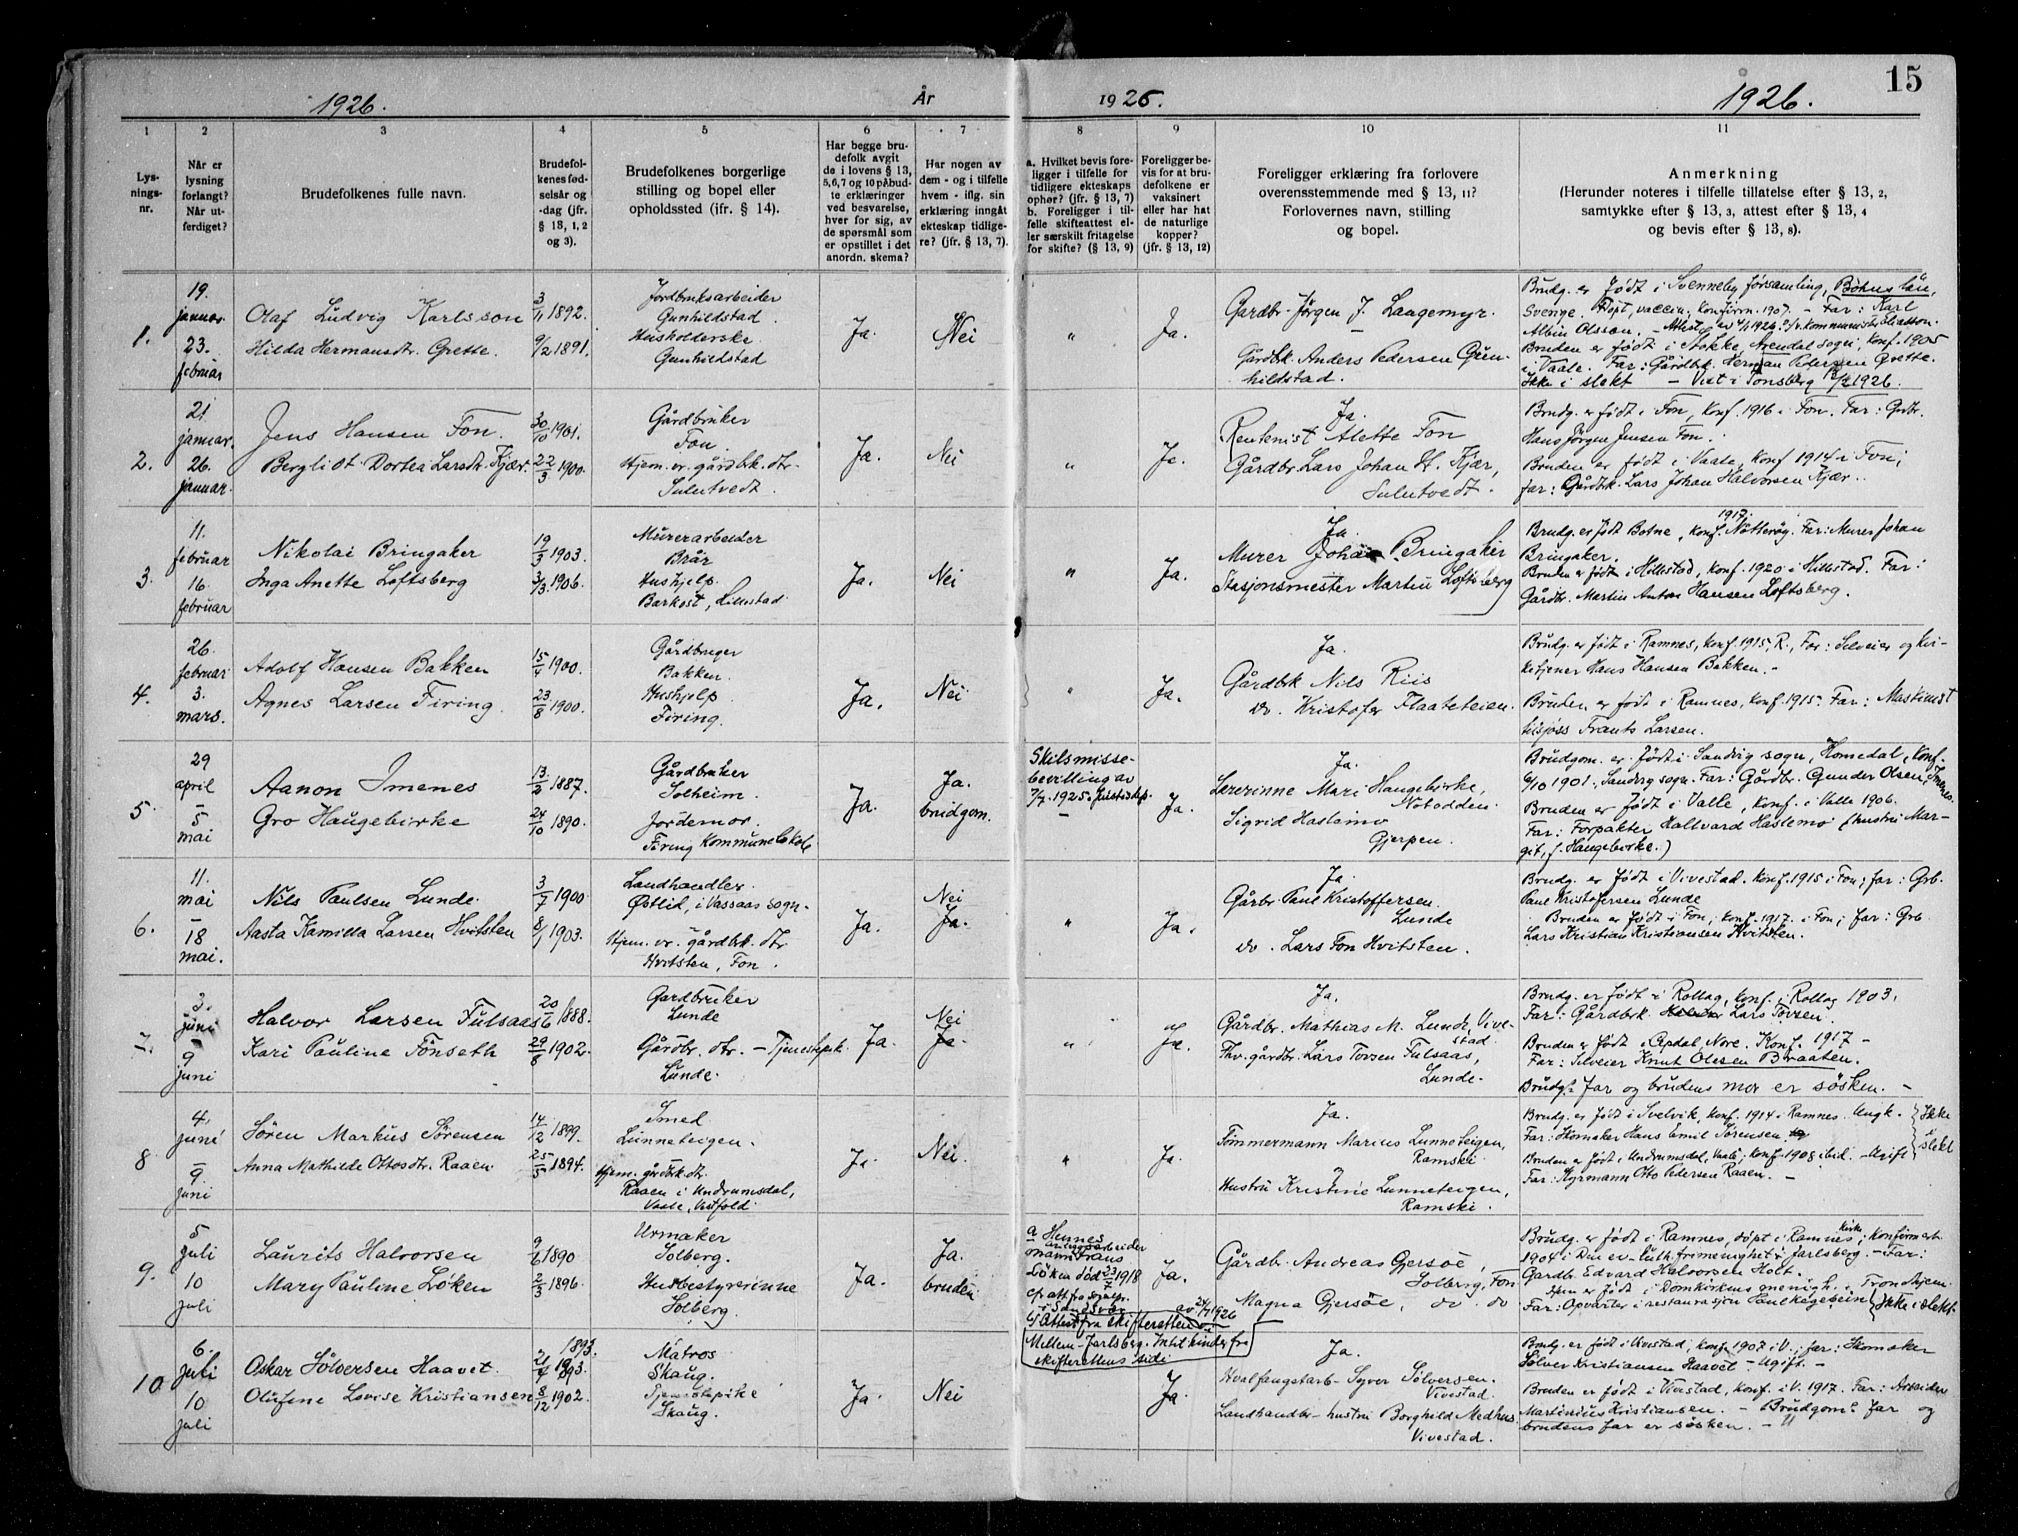 1926. År 1926. 1926. 15
1 2 3 4 5 6 7 8 9 10 11
Lysningsnr.
Når er lysning forlangt? Når utferdiget?
Brudefolkenes fulle navn.
Brudefolkenes fødselsår og -dag (jfr. § 13, 1, 2 og 3).
Brudefolkenes borgerlige stilling og bopel eller opholdssted (ifr. § 14).
Har begge brudefolk avgit de i lovens § 13, 5,6,7 og 10 påbudte erklæringer ved besvarelse, hver for sig, av de spørsmål som er opstillet i det anordn. skema?
Har nogen av dem - og i tilfelle hvem - iflg. sin erklæring inngått ekteskap tidligere? (jfr. § 13, 7).
a. Hvilket bevis foreligger i tilfelle for tidligere ekteskaps ophør? (jfr. § 13, 7)
b. Foreligger i tilfelle skifteattest eller særskilt fritagelse for skifte? (§ 13, 9)
Foreligger bevis for at brudefolkene er vaksinert eller har hat de naturlige kopper? (jfr. § 13, 12)
Foreligger erklæring fra forlovere overensstemmende med § 13, 11? Forlovernes navn, stilling og bopel.
Anmerkning
(Herunder noteres i tilfelle tillatelse efter § 13, 2, samtykke efter § 13, 3, attest efter § 13, 4 og bevis efter § 13, 8).
1. 19. januar 23. februar
Olaf Ludvig Karlsson 3/11 1892.
Hilda Hermansdtr. Grette. 9/2 1891.
Jordbruksarbeider
Gunhildstad.
Husholderske
Gunhildstad
Ja Nei " Ja.
Gardbr. Jörgen J. Langemyr.
Gårdbk. Anders Pedersen Gunhildstad.
Brudg. er født i Svenneby församling, Bohus län,
Sverige. Döpt, vaccin, konfirm. 1907. – Far: Karl
Albin Olsson.
Bruden er født i Stokke, Arendal sogn, konf. 1905
i Vaale. Far: Gårdbk. Herman Pedersen Grette.
Ikke i slekt – Viet i Tønsberg 1926.
2. 21 januar. 26. januar.
Jens Hansen Fon. 30/10 1901.
Bergliot Dortea Larsdtr. Kjær. 22/3 1900.
Gårdbruker
Fon.
Hjem. vr. gårdbk. dtr.
Sulutvedt.
Ja. Nei " Ja.
Ja.
Rentenist Alette Fon
Gårdbr. Lars Johan H. Kjær,
Sulutvedt.
Brudg. er født i Fon, Konf. 1916 i Fon. Far: Grdbr.
Hans Jørgen Jensen Fon.
Bruden er født i Vaale, konf 1914 i Fon;
far: Gårdbk. Lars Johan Halvorsen Kjær.
3. 11. februar 16. februar
Nikolai Bringaker 19/3 1903.
Inga Anette Loftsberg 3/3. 1906.
Murerarbeider
Brår
Hushjelp.
Barkost, Hillestad
Ja. Nei " Ja.
Ja
Murer Johan Bringaker
Stasjonsmester Martin Loftsberg
Brudg. er født Botne, konf. 1917. Nøtterøy. Far: Murer Johan
Bringaker.
Bruden er født i Hillestad, konf. 1920 i Hillestad. Far:
Gårdbr. Martin Anton Hansen Loftsberg.
4. 26. februar 3. mars.
Adolf Hansen Bakken 15/4 1900.
Agnes Larsen Firing. 23/8 1900.
Gårdbruger
Bakken.
Hushjelp
Firing.
Ja. Nei " Ja.
Ja.
Gårdbrk Nils Riis
do. Kristofer Flaateteien.
Brudg er født i Ramnes, konf. 1915, R., Far: Selveier og kirketjener Hans Hansen Bakken. –
Bruden er født i Ramnes, konf. 1915. Far: Maskinist
tilsjøss Frants Larsen.
5 29 april 5 mai
Aanon Imenes 13/2 1887.
Gro Haugebirke 24/10 1890.
Gårdbruker
Solheim.
Jordemor.
Firing kommunelokale
Ja. Ja. brudgom.
Skilsmissebevilling av 7/7. 1925. Justisdep.
Ja.
Ja.
Lærerinne Mari Haugebirke,
Notodden
Sigrid Haslemo
Gjerpen.
Brudgom. er født i Sandrig sogn, Homedal, konf.
6/10 1901. Sandrig sogn. Far: Gårdbr. Gunder Olsen Imenes.
Bruden er født i Valle, konf. i Valle 1906.
Far: Forpakter Hallvard Haslemo (hustru Margit, f. Haugebirke.)
6. 11. mai – 18 mai.
Nils Paulsen Lunde. 3/7 1900.
Aasta Kamilla Larsen Hvitsten 8/1 1903.
Landhandler.
Østlid, i Vassaas sogn.
Hjem. vr. gårdbk. dtr
Hvitsten, Fon.
Ja. Nei Ja. " Ja.
Ja.
Gårbr. Paul Kristoffersen
Lunde
do. Lars Fon Hvitsten.
Brudg. er født i Vivestad. Konf. 1915 i Fon; far: Grb.
Paul Kristofersen Lunde
Bruden er født i Fon, konf. 1917. i Fon; far: Grb.
Lars Kristian Kristiansen Hvitsten.
7. 3. juni – 9 juni
Halvor Larsen Fulsaas 20/6 1888.
Kari Pauline Fönseth 29/8 1902.
Gardbruker
Lunde
Gårdbr. dtr. – Tjenestepik.
Lunde.
Ja. Nei Ja. " Ja.
Ja.
Gårdbr. Mathias M. Lunde, Vivestad
Fhv. gårdbr. Lars Torsen Fulsaas,
Lunde.
Brudg. er født i Rollag, konf. i Rollag 1903.
Far: Gårdbrk Lars Torsen.
Bruden er født i Opdal, Nore. Konf. 1917 –
Far: Selveier Knut Olesen Braaten.
Brudg.s far og brudens mor er søsken. –
8 4. juni – 9. juni
Søren Markus Sørensen 14/12 1899.
Anna Mathilde Ottosdtr. Raaen. 25/5 1894.
Smed
Lunneteigen.
Hjem. gårdbk. dt.
Raaen i Undrumsdal,
Vaale, Vestfold
Ja. Nei. " Ja.
Ja.
Tømmermann Marius Lunneteigen,
Ramski
Hustru Kristine Lunneteigen,
Ramski.
Brudg. er født i Svelvik, konf. 1914 i Ramnes. Ungk.
Far: Skomaker Hans Emil Sørensen.
Bruden er født i Undrumsdal, Vaale; konf. 1908 ibid. – Ugift
Far: Styrmann Otto Pedersen Raaen. –
Ikke i slekt
9. 5 juli 10 juli
Laurits Halvorsen 9/6 1890
Mary Pauline Løken 2/3 1896.
Urmaker
Solberg.
Husbestyrerinne
Solberg.
Ja. Ja. bruden
a Hennes
mann Frans
Løken død 23/7 1918
Ja.
Gårdbr. Andreas Gjersøe,
Solberg, Fon
Magna Gjersøe, do. do
Brudg. er født i Ramnes, døpt i Ramnes kirke, konfirmert
1904 i Den ev-luth. frimenighet i Jarlsberg. – Far:
Gardbr. Edvard Halvorsen Holt.
er født i Domkirkens menigh. i Trondhjem.
Far: Opvarter i restaurasjon Paul Kegebein
Ikke i slekt.
b) Attest fra skifteretten av 24/7 1926
Mellem-Jarlsberg. Intet hinder fra
skifterettens side
10 6. juli 10 juli
Oskar Sølversen Haavet. 21/4 1893. 1893.
Olufine Lovise Kristiansen 8/12 1902.
Matros
Skaug.
Tjenestepike
Skaug.
Ja. Nei Ja.
Ja.
Hvalfangstarb. Syver Sølversen.
Vivestad.
Landhandlr. hustru Borghild Medhus
Vivestad.
Brudg. er født i Vivestad, konf. 1907 i V.; far: Skomaker
Sølver Kristiansen Haavet – Ugift. –
Bruden er født i Vivestad, konf. i V. 1917. Far: Arbeider
Martinius Kristiansen. – Brudgoms far og
brudens far er søsken. –